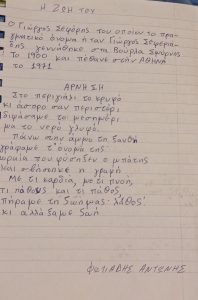 Η ΖΩΗ ΤΟΥ
Ο Γιώργος Σεφέρης του οποίου το πρα-
γματικό όνομα ήταν Γιώργος Σεφερια-
δης γεννήθηκε στα Βουρλα Σμύρνης
Το 1900 και πέθανε στην Αθήνα
το 1971
ΑΡΝΗΣΗ
Στο περιγιάλι το κρυφό
κι άσπρο σαν περιστέρι
διψάσαμε το μεσημέρι
μα το νερό γλυφό.
Πάνω στην άμμο τη ξανθή
γράψαμε τ' όνομα της
ωραία που φύσηξεν ο μπάτης
και σβήστηκε η γραφή
Με τι καρδιά, με τι πνοή,
τι πόθους και τι πάθος
πήραμε τη ζωή μας· λάθος!
κι αλλάξαμε ζωή
ΦΩΤΙΑΔΗΣ ΑΝΤΩΝΗΣ